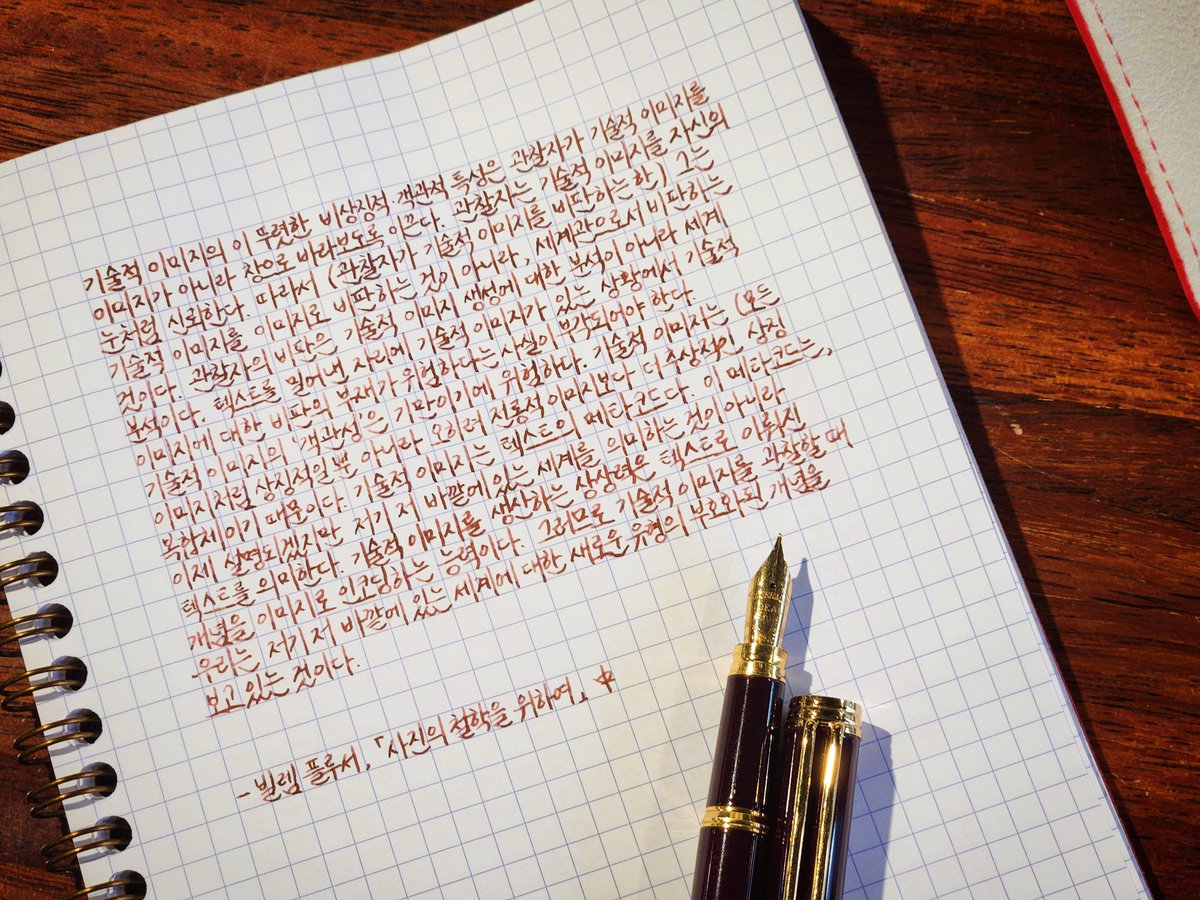 기술적 이미지의 이 뚜렷한 비상징적, 객관적 특성은 관찰자가 기술적 이미지를
이미지가 아니라 창으로 바라보도록 이끈다. 관찰자는 기술적 이미지를 자신의
눈처럼 신뢰한다. 따라서 (관찰자가 기술적 이미지를 비판하는 한) 그는
기술적 이미지를 이미지로 비판하는 것이 아니라, 세계관으로서 비판하는
것이다. 관찰자의 비판은 기술적 이미지 생성에 대한 분석이 아니라 세계
분석이다. 텍스트를 밀어낸 자리에 기술적 이미지가 있는 상황에서 기술적
이미지에 대한 비판의 부재가 위험하다는 사실이 부각되어야 한다.
기술적 이미지의 '객관성'은 기만이기에 위험하다. 기술적 이미지는 (모든
이미지처럼) 상징적일 뿐 아니라 오히려 전통적 이미지보다 더 추상적인 상징
복합체이기 때문이다. 기술적 이미지는 텍스트의 메타코드다. 이 메타코드는,
이제 설명되겠지만 저기 저 바깥에 있는 세계를 의미하는 것이 아니라
텍스트를 의미한다. 기술적 이미지를 생산하는 상상력은 텍스트로 이뤄진
개념을 이미지로 인코딩하는 능력이다. 그러므로 기술적 이미지를 관찰할 때
우리는 저기 저 바깥에 있는 세계에 대한 새로운 유형의 부호화된 개념을
보고 있는 것이다.
- 빌렘 플루서, 「사진의 철학을 위하여」 中